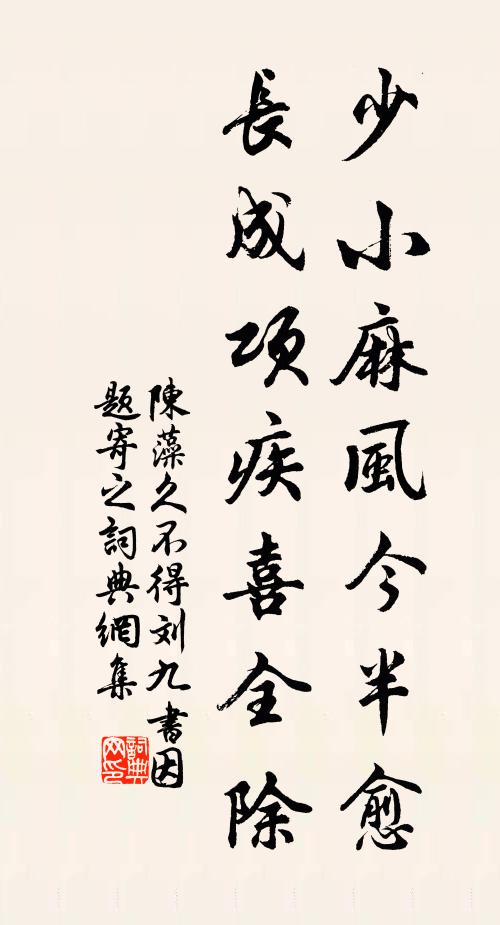 少小麻風今半愈
長成項疾喜全除
陳藻久不得刘九書因
題寄之詞典網集
詞典网印